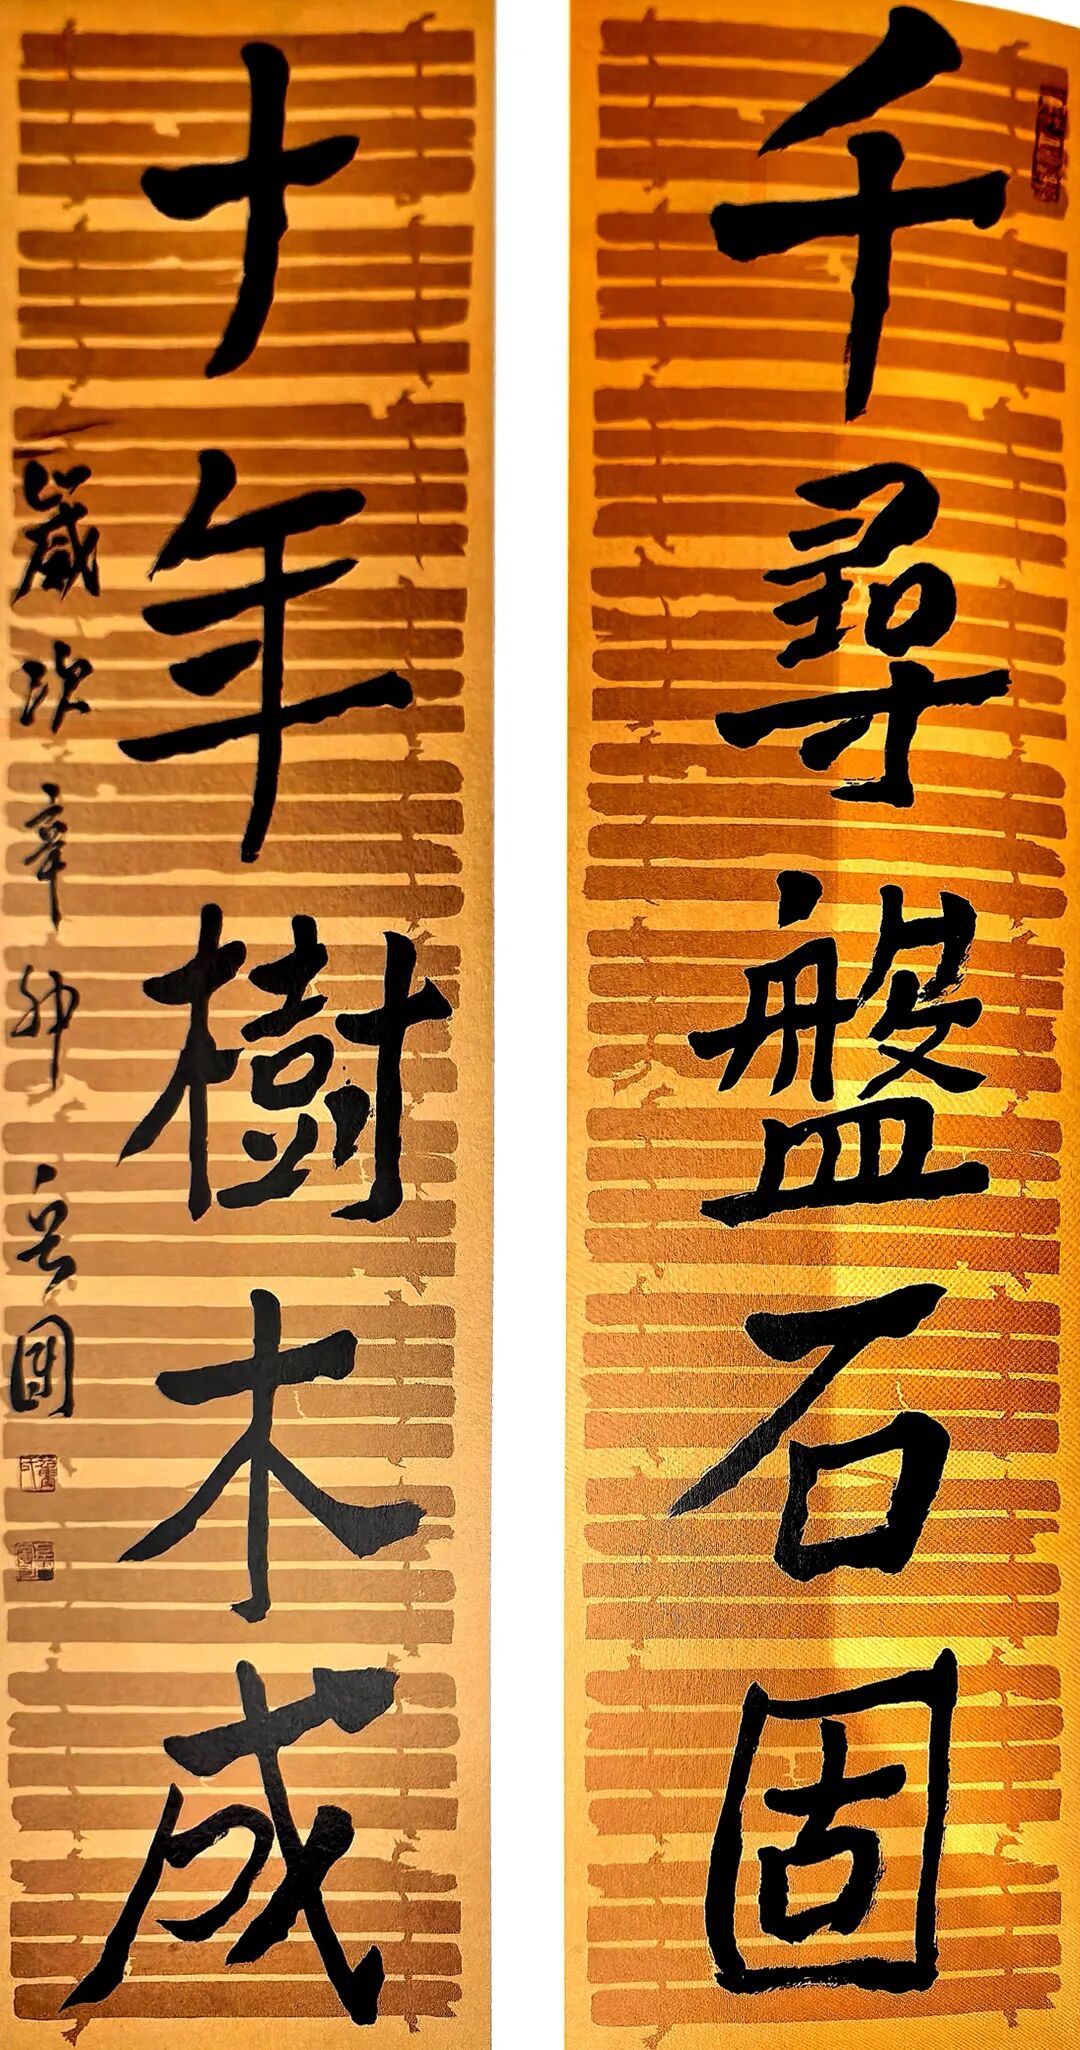 千尋盤石固
十年樹木成
歲次辛卯